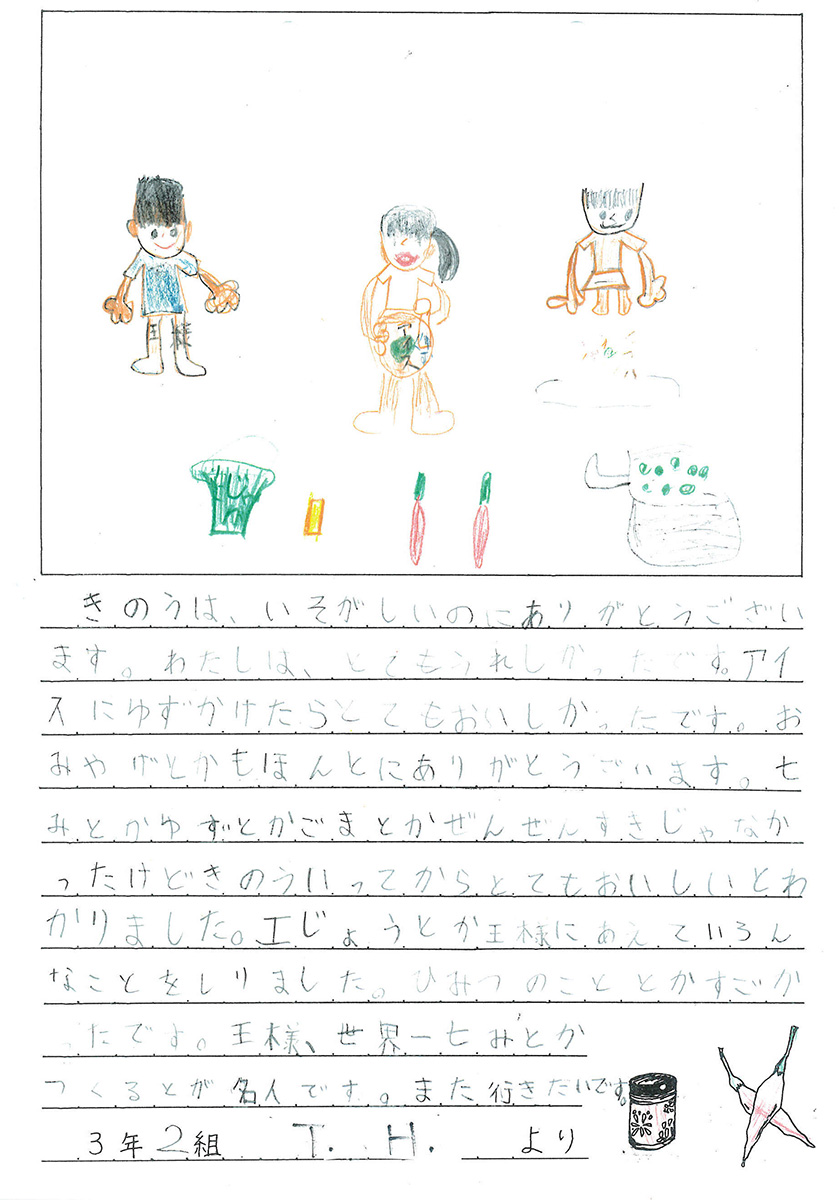 王様
名人
きのうは、いそがしいのにありがとうござい
ます。わたしは、とてもうれしかったです。アイ
スにゆずかけたらとてもおいしかったです。お
みやげとかもほんとにありがとうございます。七
みとかゆずとかごまとかぜんぜんすきじゃなか
ったけどきのういってからとてもおいしいとわ
かりました。工じょうとか王様にあえていろん
なことをしりました。ひみつのこととかすごか
ったでよ。王様、世界一七みとか
つくるとが名人です。また行きたいです。
3年2組 T. H. より